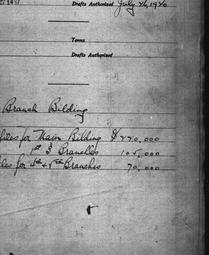 Drafts Authorized July 26, 1920
Terms
Drafts Authorized
Branch Bilding
for Main Bilding $ 220,000
1st 3 Branches 105,000
for 4th & 5th Branches 70,000